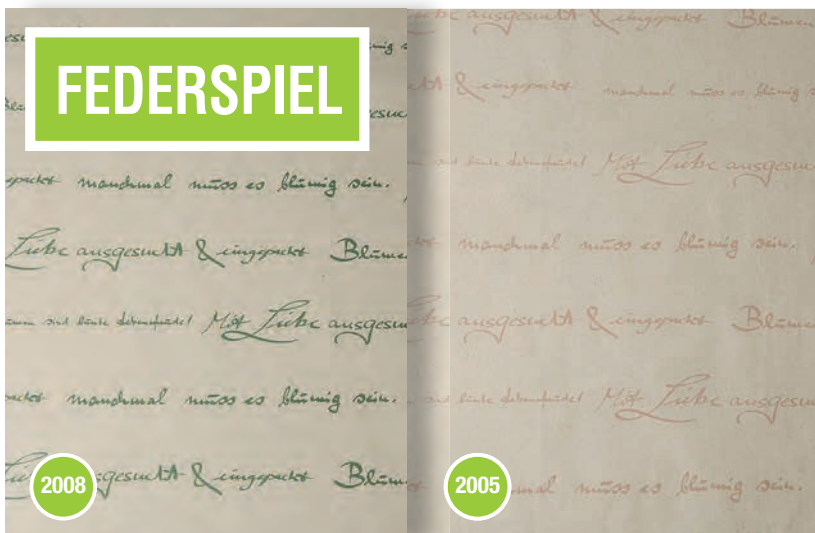 FEDERSPIEL
manchmal muss es blumig sein.
Liebe ausgesucht & eingepackt Blumen
sind bunte Mit Liebe ausgesu
manchmal muss es blumig sein.
gesucht & eingepackt Blum
2008
ausgesucht & eingepackt Blumen
& eingepackt manchmal muss es blumig s
sind bunte Mit Liebe ausgesuc
manchmal muss es blumig sein.
ausgesucht & eingepackt Blumen
sind bunte Mit Liebe ausgesu
mal muss es blumig sein.
2005